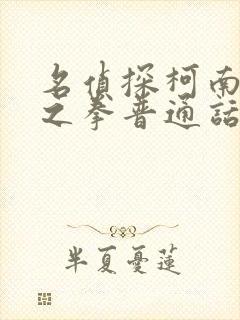 名偵探柯南
之拳普通話
半夏憂蓮